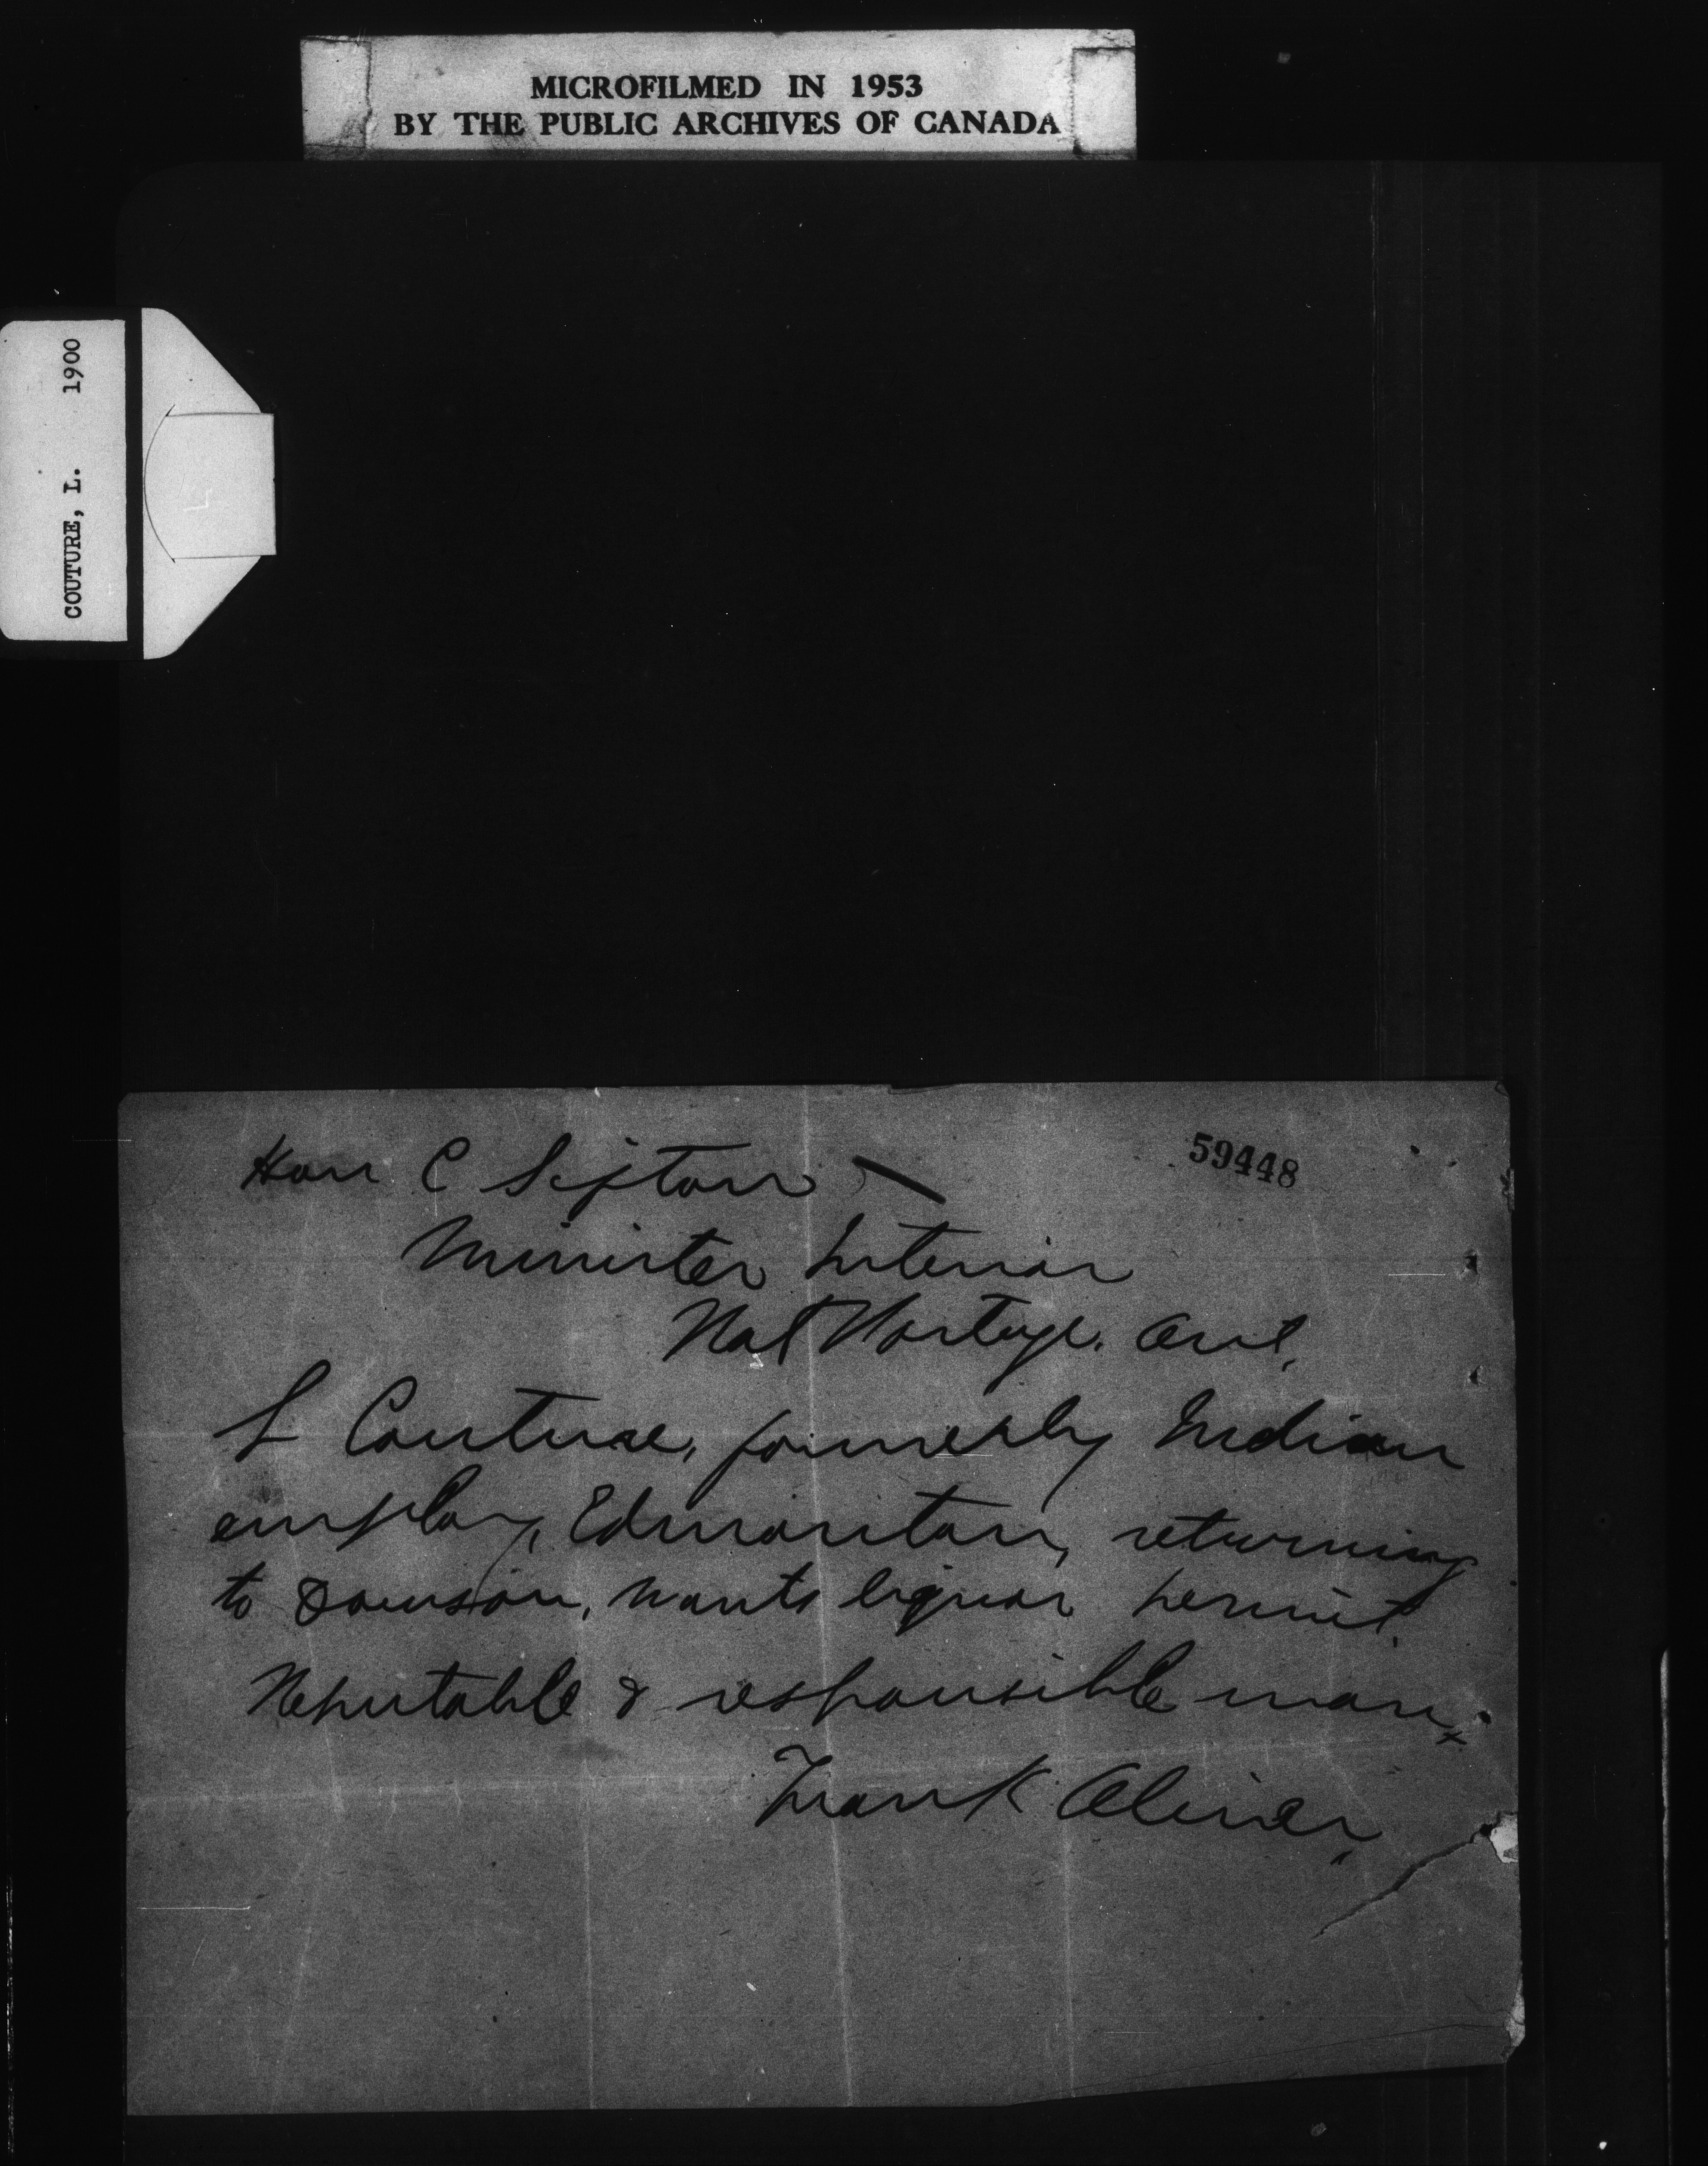 MICROFILMED IN 1953
BY THE PUBLIC ARCHIVES OF CANADA
COUTURE, L. 1900
59448
Hon C Sifton
Minister Interior
Rat Portage. Ont,
L Couture, formerly Indian
employ, Edmonton, returning
to Dawson, wants liquor permit.
Reputable & responsible man.
Frank Oliver